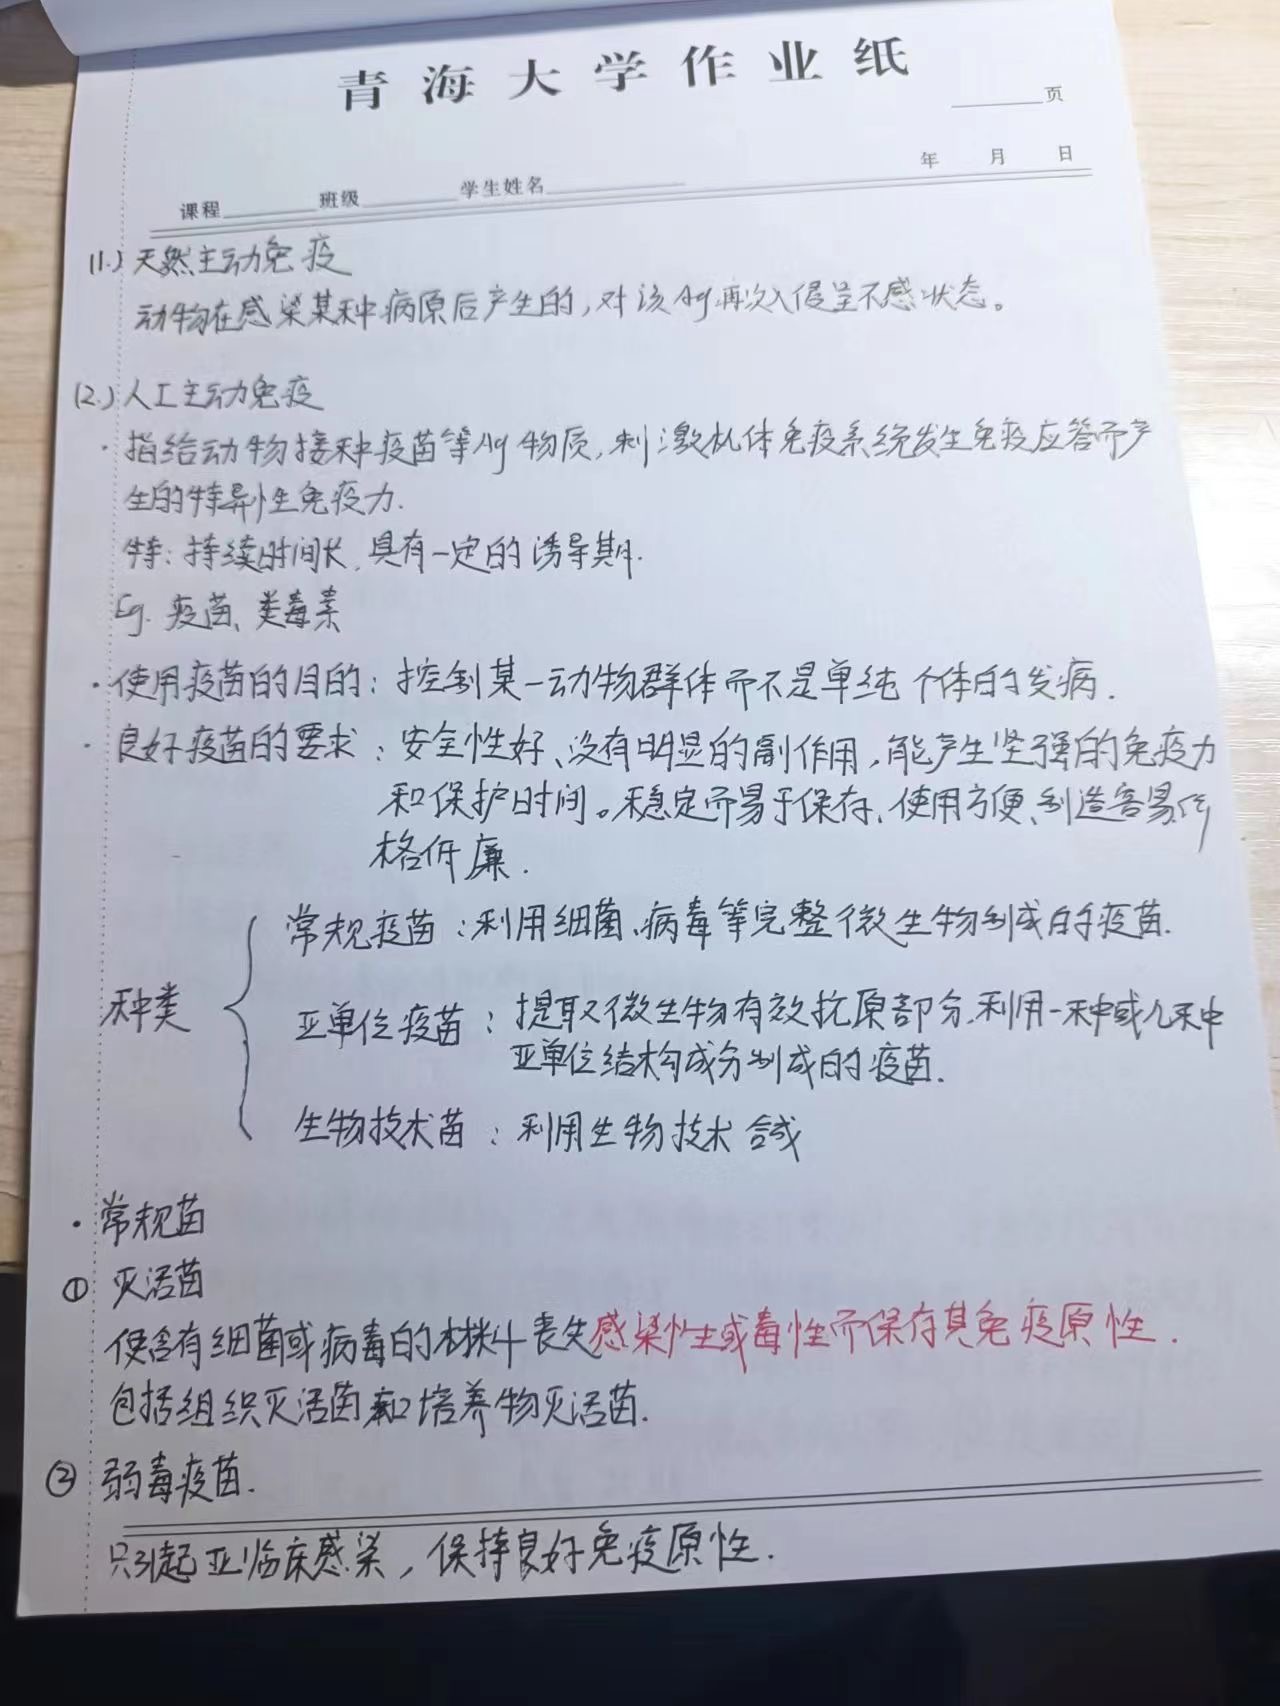 青海大学作业纸
页
年 月 日
课程 班级 学生姓名
(1.) 天然主动免疫
动物在感染某种病原后产生的,对该Ag再次入侵呈不感状态。
(2.) 人工主动免疫
· 指给动物接种疫苗等Ag物质,刺激机体免疫系统发生免疫应答而产
生的特异性免疫力.
特: 持续时间长, 具有一定的诱导期.
Eg. 疫苗、类毒素
· 使用疫苗的目的: 控制某一动物群体而不是单纯个体的发病.
· 良好疫苗的要求: 安全性好、没有明显的副作用,能产生坚强的免疫力
和保护时间。稳定而易于保存、使用方便、制造容易价
格低廉.
种类
常规疫苗: 利用细菌、病毒等完整微生物制成的疫苗.
亚单位疫苗: 提取微生物有效抗原部分,利用一种或几种
亚单位结构成分制成的疫苗.
生物技术苗: 利用生物技术合成
· 常规苗
① 灭活苗
使含有细菌或病毒的材料丧失感染性或毒性而保存其免疫原性.
包括组织灭活苗和培养物灭活苗.
② 弱毒疫苗.
只引起亚临床感染,保持良好免疫原性.